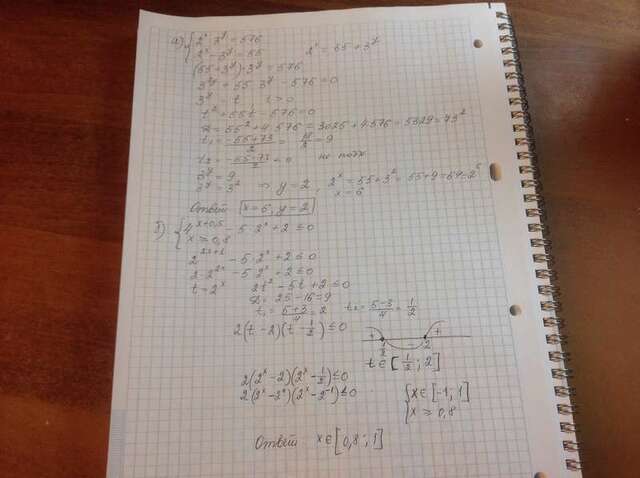 а) { 2ˣ · 3ʸ = 576
2ˣ - 3ʸ = 55    2ˣ = 55 + 3ʸ
(55 + 3ʸ) · 3ʸ = 576
3²ʸ + 55 · 3ʸ - 576 = 0
3ʸ = t    t > 0
t² + 55t - 576 = 0
D = 55² + 4 · 576 = 3025 + 4 · 576 = 5329 = 73²
t₁ = (-55 + 73)/2 = 18/2 = 9
t₂ = (-55 - 73)/2 < 0    не подх
3ʸ = 9
3ʸ = 3² ⇒ y = 2, 2ˣ = 55 + 3² = 55 + 9 = 64 = 2⁶
x = 6
Ответ [x = 6, y = 2]
б) { 4^(x+0,5) - 5 · 2ˣ + 2 ≤ 0
x ≥ 0,8
2^(2x+1) - 5 · 2ˣ + 2 ≤ 0
2 · 2²ˣ - 5 · 2ˣ + 2 ≤ 0
t = 2ˣ    2t² - 5t + 2 ≤ 0
D = 25 - 16 = 9
t₁ = (5+3)/4 = 2    t₂ = (5-3)/4 = 1/2
2(t - 2)(t - 1/2) ≤ 0
+ - +
1/2 2
t ∈ [1/2; 2]
2(2ˣ - 2)(2ˣ - 1/2) ≤ 0
{ x ∈ [-1; 1]
x ≥ 0,8
Ответ x ∈ [0,8; 1]